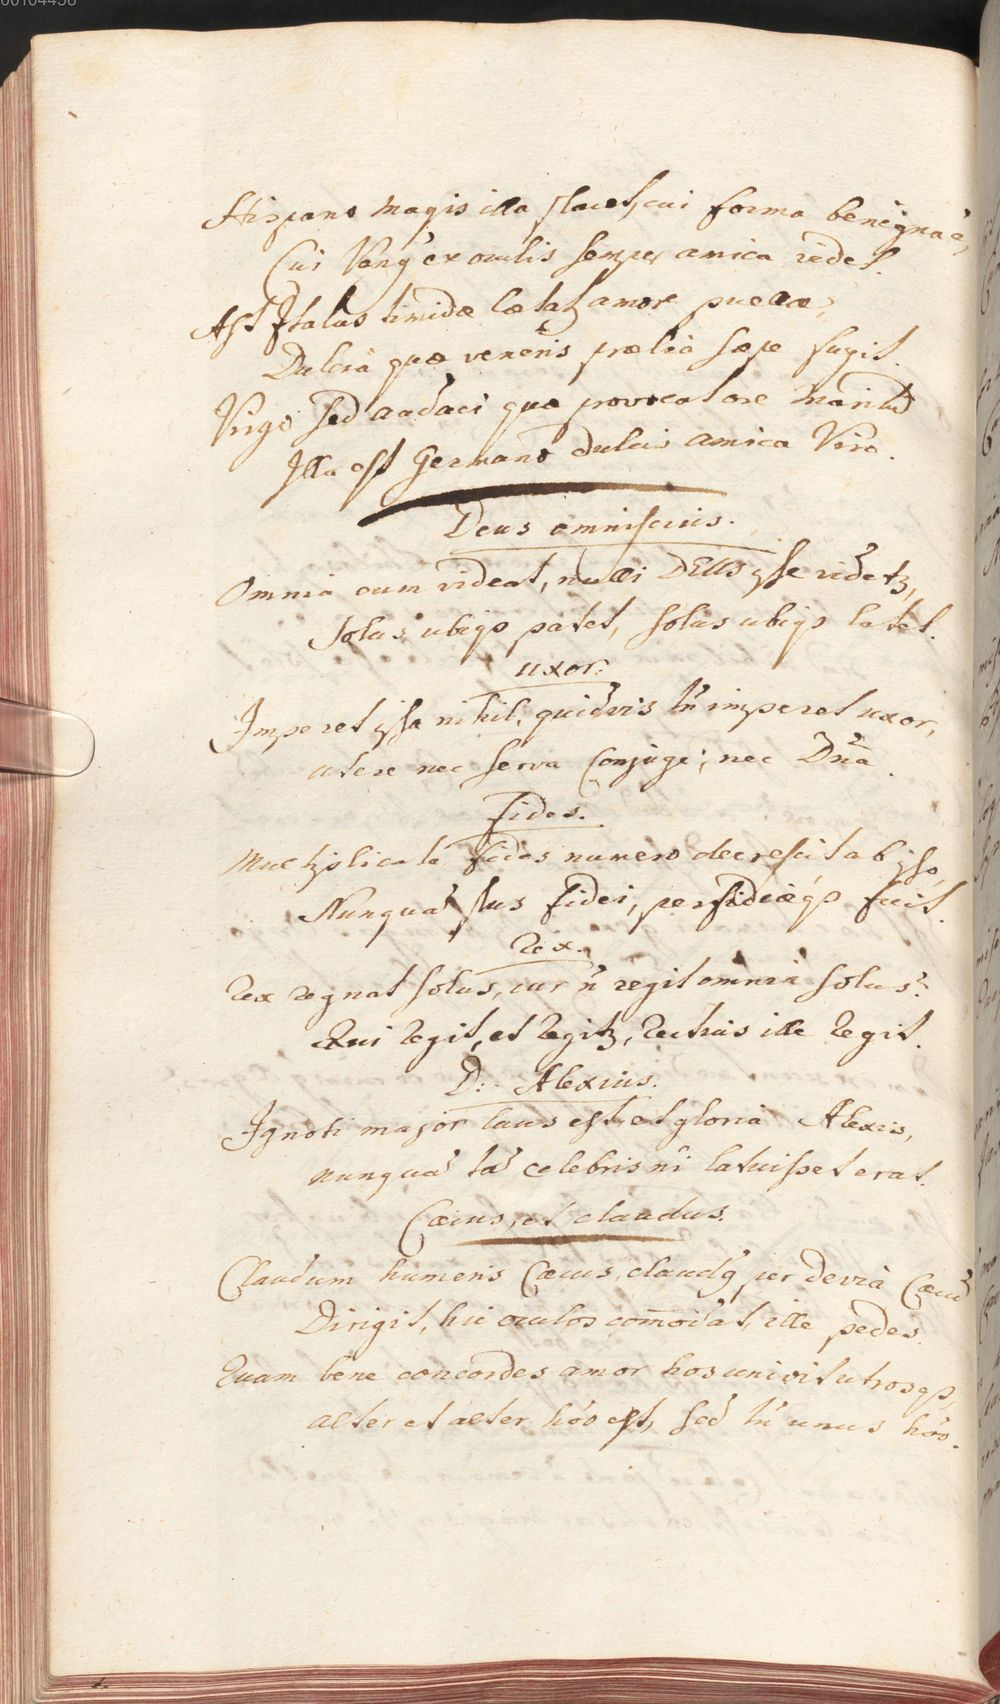 Hispano magis illa placet, cui forma benigna ē,
Cui Veng' ex oculis semper amica ridet.
Ast Italus timidæ lætatʒ amore puellæ,
Dulcia quæ veneris prælia sæpe fugit.
Virgo sed audaci quæ provocat ore Maritū
Illa est Germano dulcis amica Viro.
Deus omniscius.
Omnia cum videat, nulli DEUS ipse videtʒ,
Solus ubiqɜ patet, solus ubiqɜ latet.
uxor.
Imperet ipsa nihil, quidvis tn̄ imperet uxor,
utere nec serva Conjuge, nec Dn̄a.
fides.
Multiplicata fides numero decrescit ab ipso,
Nunquā plus fidei, perfidiæqɜ fuit.
Rex.
Rex regnat solus, cur n̄ regit omnia solus?
Qui Regit, et Regitʒ, Rectius ille Regit.
D. Alexius.
Ignoti major laus est, et gloria Alexis,
nunquā tā celebris ni latuisset erat.
Cæcus, et claudus.
Claudum humeris Cæcus, claudg' per devia Cæcū
Dirigit, hic oculos com̄odat, ille pedes.
Quam bene concordes amor hos univit utrosqɜ,
alter et alter hōo est, sed tn̄ unus hōo.